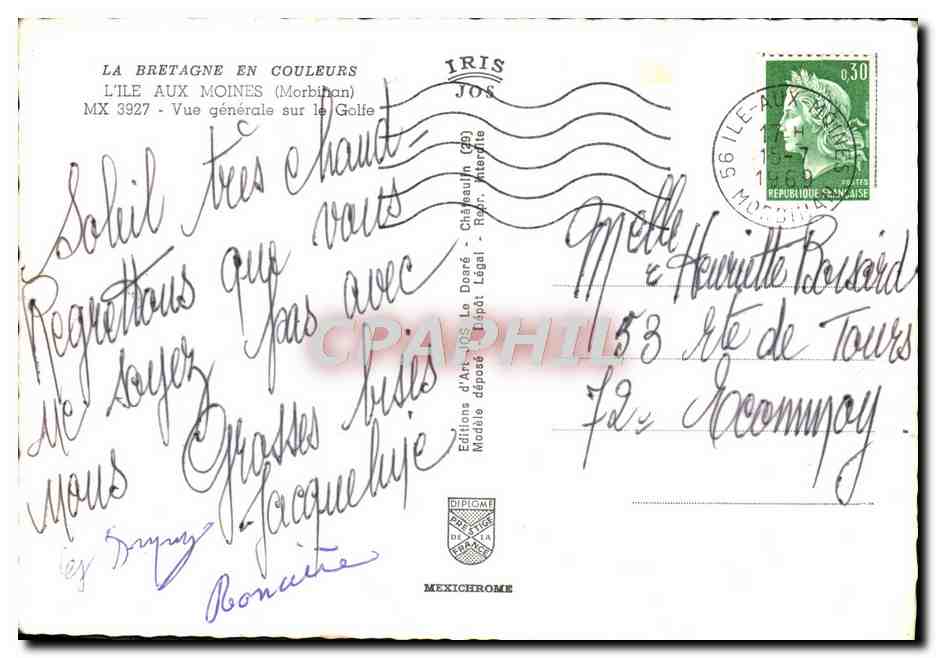 LA BRETAGNE EN COULEURS
L'ILE AUX MOINES (Morbihan)
MX 3927 - Vue générale sur le Golfe
Soleil très chaud -
Regrettons que vous
ne soyez pas avec
nous Grosses bises
Jacqueline
Roncière
IRIS
JOS
Editions d'Art JOS Le Doaré - Châteaulin (29)
Modèle déposé - Dépôt Légal - Repr. interdite
DIPLOME
PRESTIGE
DE LA
FRANCE
MEXICHROME
0,30
POSTES
REPUBLIQUE FRANÇAISE
56 ILE-AUX-MOINES
17 H
15-7
1969
MORBIHAN
Melle
Henriette Boisard
53 rte de Tours
72 Ecommoy
CPAPHIL